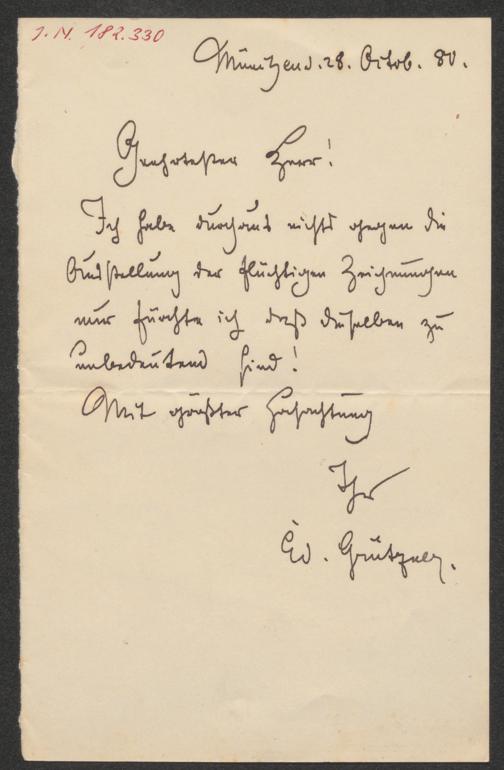 J. N. 182.330
München d. 28. Octob. 80.
Geehrtester Herr!
Ich habe durchaus nichts gegen die
Ausstellung der flüchtigen Zeichnungen
nur fürchte ich daß dieselben zu
unbedeutend sind!
Mit größter Hochachtung
Ihr
Ed. Grützner.